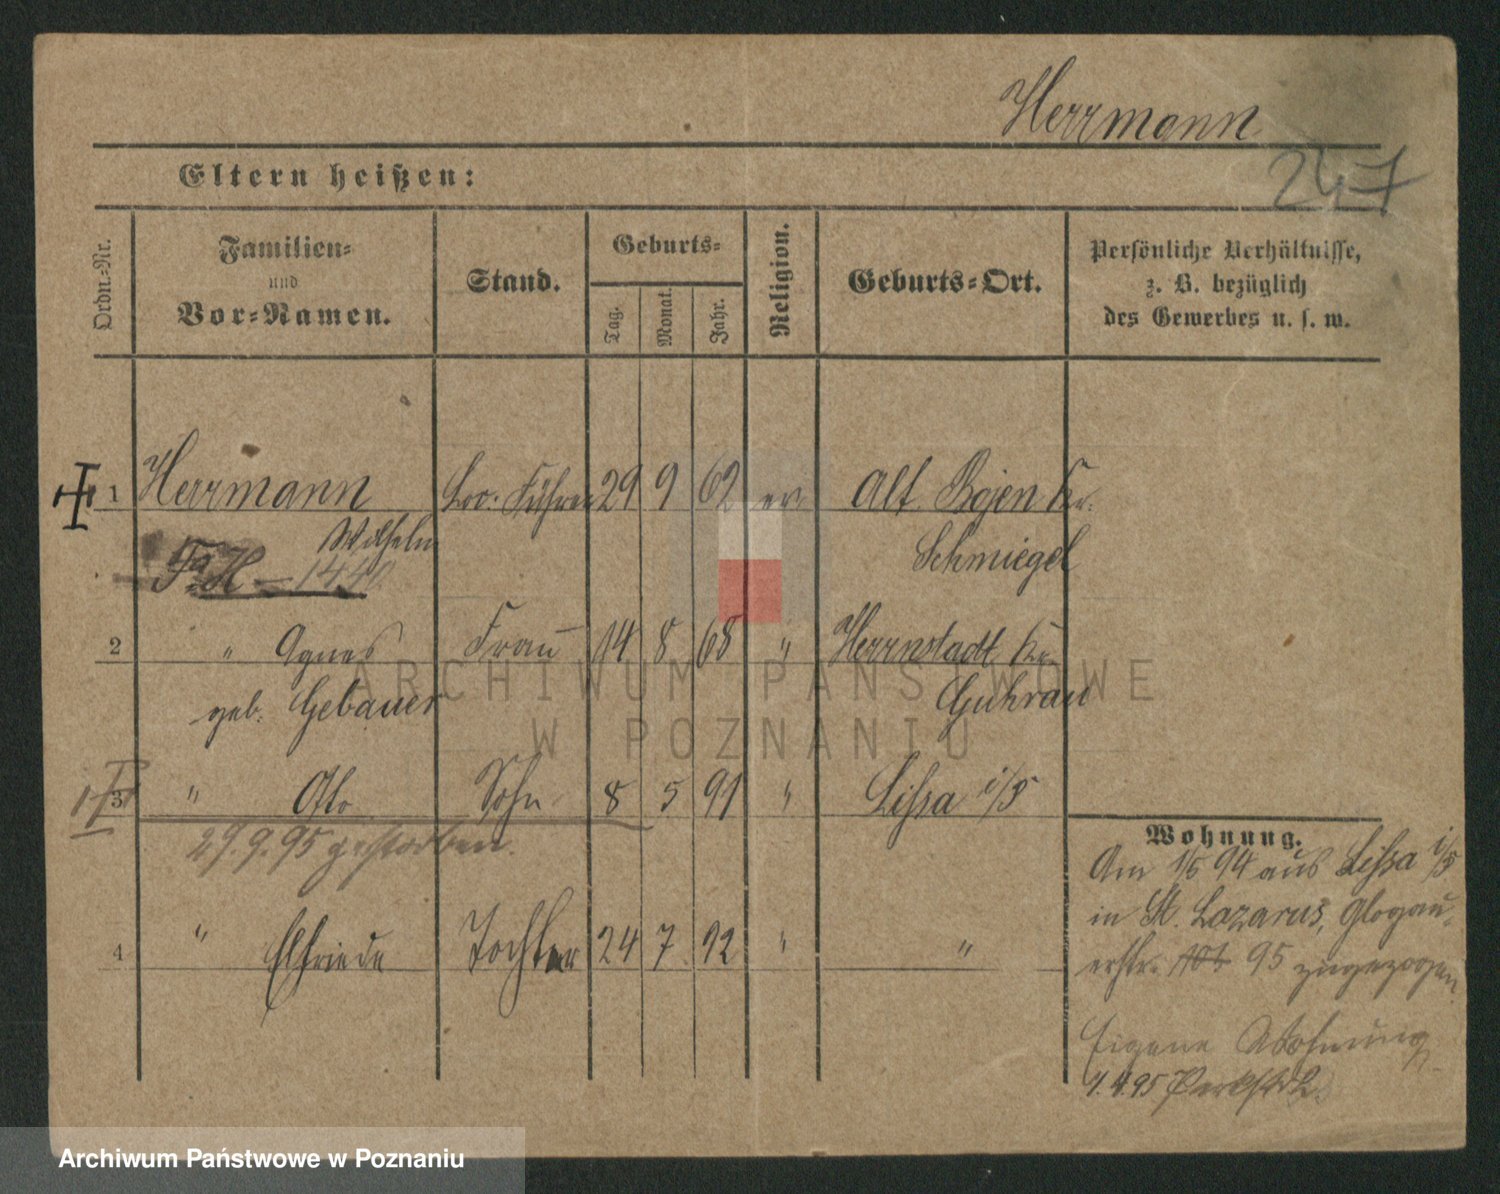 Herrmann
247
Eltern heißen:
Ordn.-Nr.
Familien- und Vor-Namen.
Stand.
Geburts-
Tag.
Monat.
Jahr.
Religion.
Geburts-Ort.
Persönliche Verhältnisse,
z. B. bezüglich
des Gewerbes u. s. w.
1 Herrmann Loc. Führer 29 9 62 ev. Alt Bojen Kr.
Wilhelm Schmiegel
Fa H 1440
2 " Agnes Frau 14 8 68 " Herrnstadt Kr.
geb. Gebauer Guhrau
3 " Otto Sohn 8 5 91 " Lissa i/P
29.9.95 gestorben.
4 " Elfriede Tochter 24 7 92 " "
Wohnung.
Am 1/5 94 aus Lissa i/P
in St. Lazarus, Glogau-
erstr. 95 zugezogen
Eigene Wohnung
1.4.95
ARCHIWUM PAŃSTWOWE
W POZNANIU
Archiwum Państwowe w Poznaniu